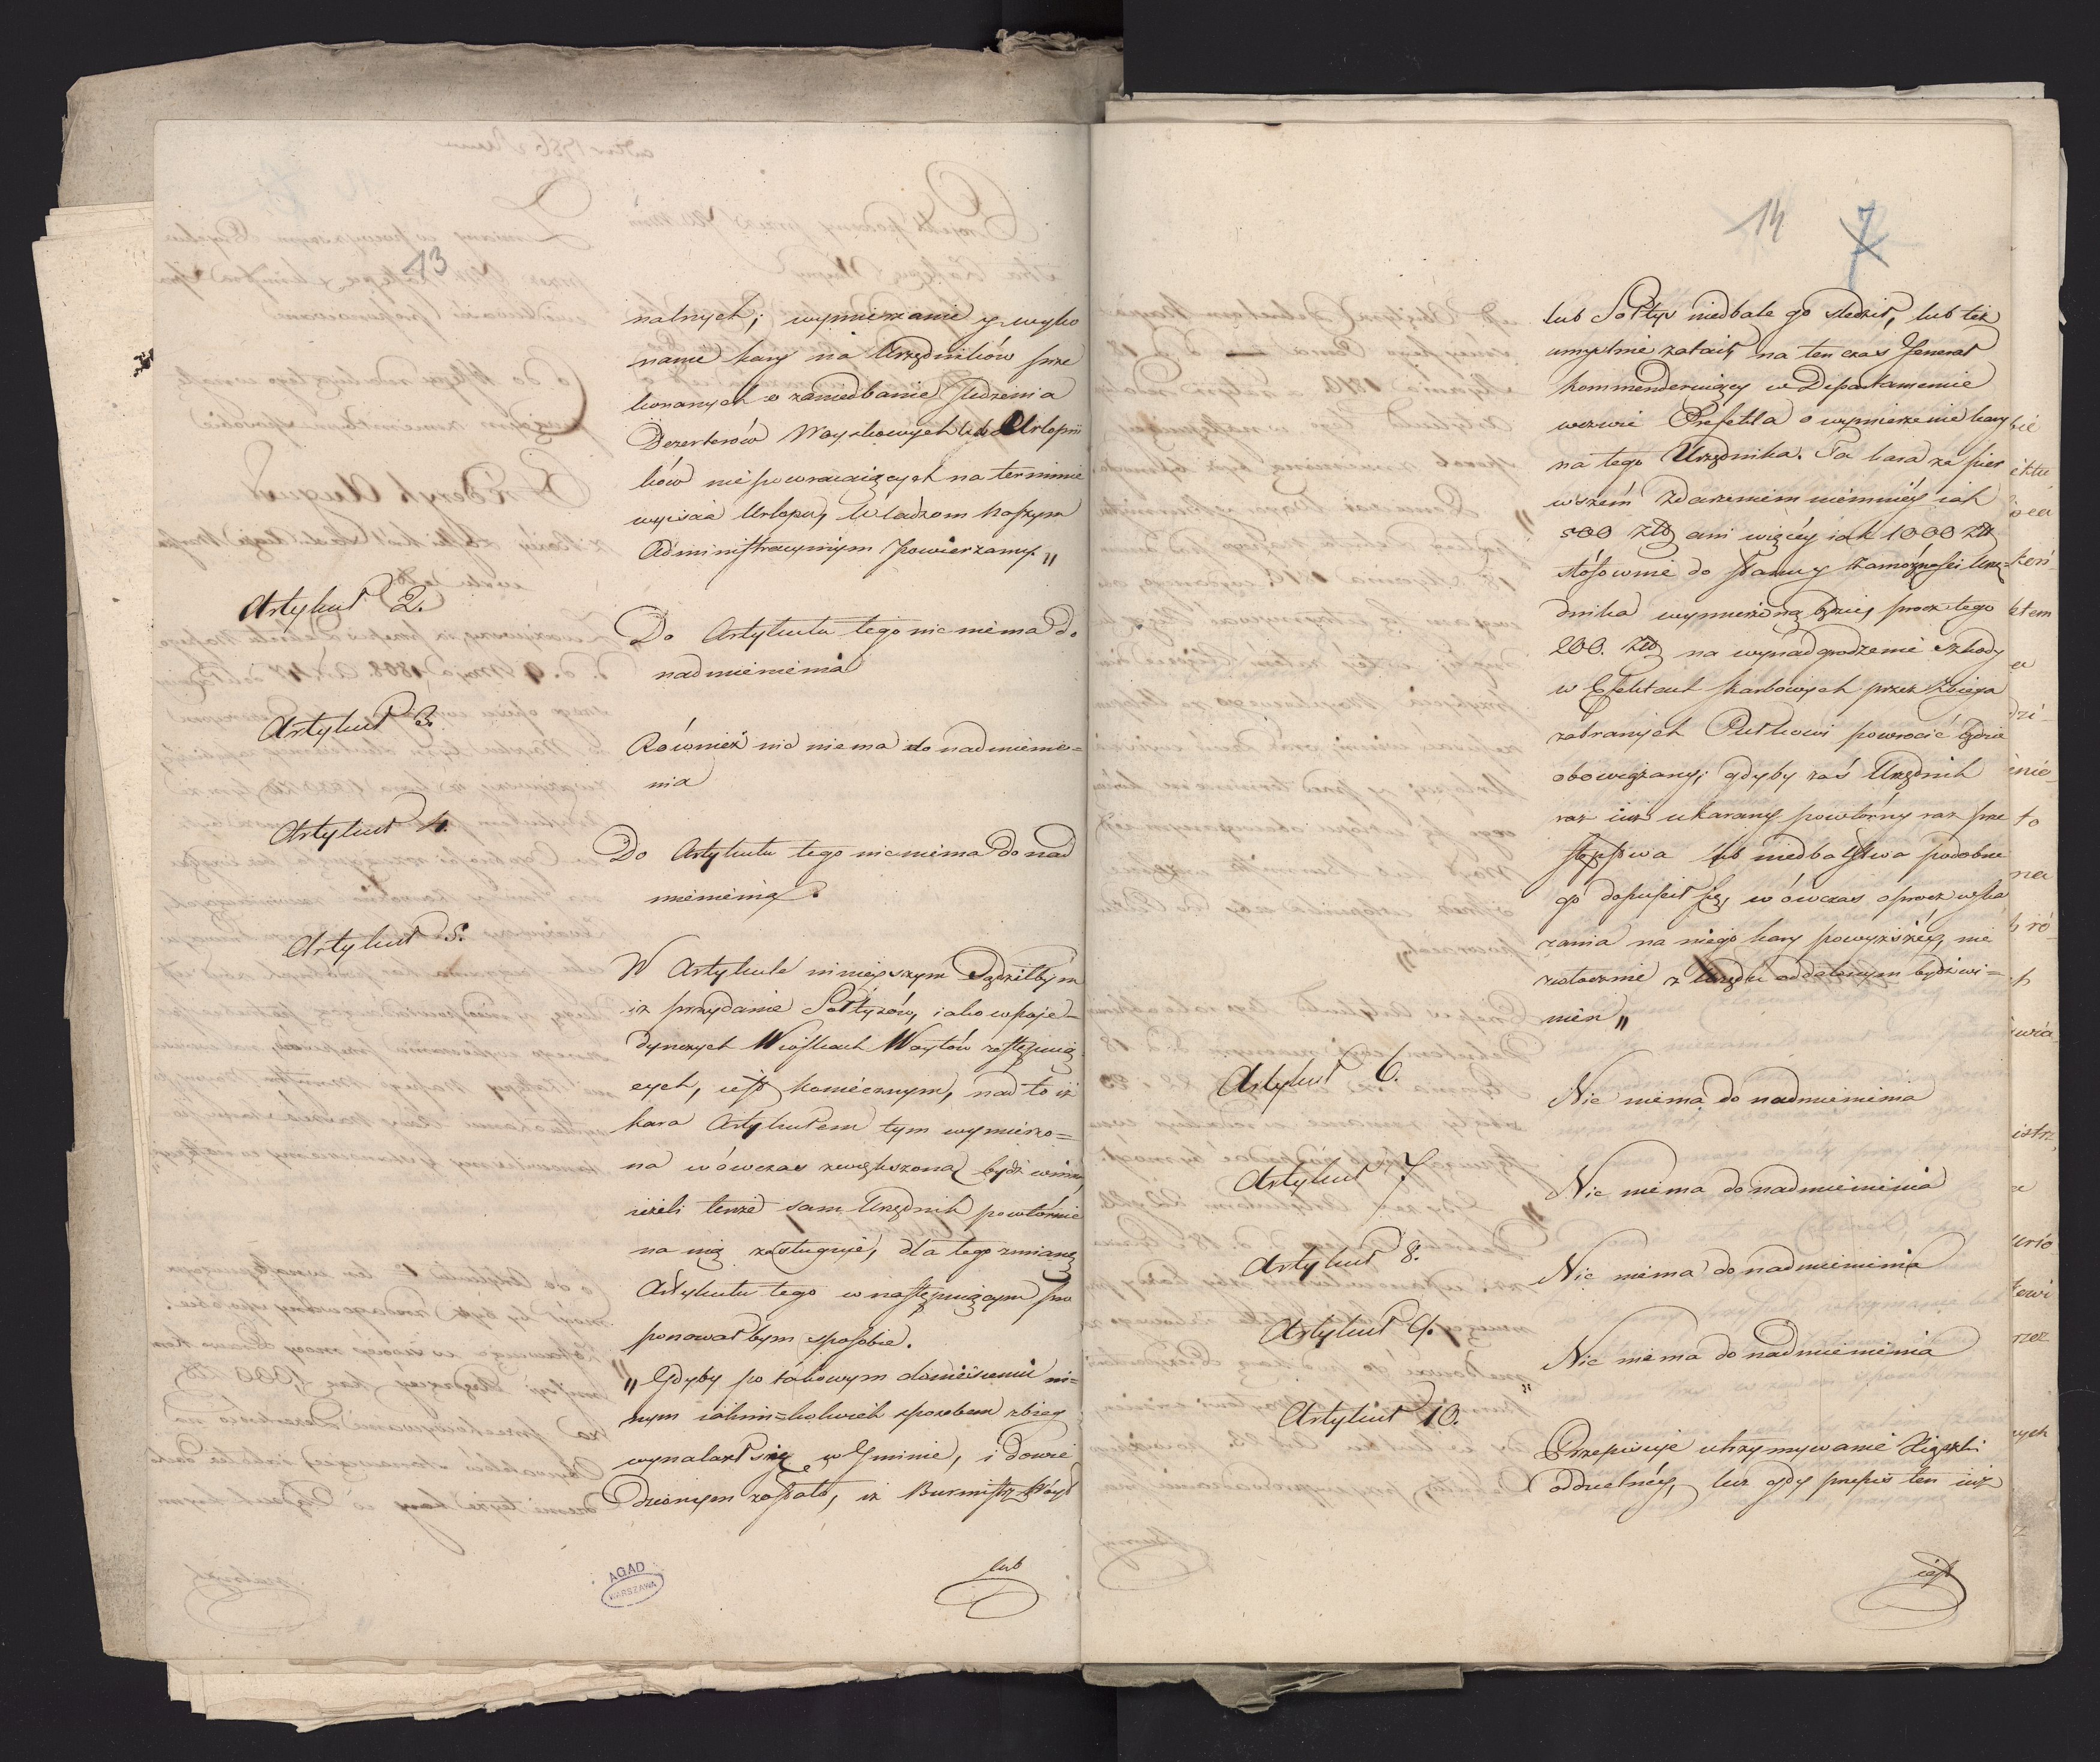 13
nalnych; wymierzanie y wyko
nanie kary na Urzędników prze
konanych o zaniedbanie śledzenia
Dezerterów Woyskowych lub Urlopni
ków niepowracaiących na terminie
wyiścia Urlopu, Władzom Naszym
Administracyinym powierzamy."
Artykuł 2.
Do Artykułu tego nic niema do
nadmienienia
Artykuł 3.
Również nic niema do nadmienie=
nia
Artykuł 4.
Do Artykułu tego nic niema do nad
mienienia.
Artykuł 5.
W Artykule ninieyszym Sądziłbym
iż przydanie Sołtysów, iako w poje=
dynczych Wioskach Woytów zastępuią
cych, iest koniecznym, nad to iż
kara Artykułem tym wymierzo=
na wówczas zwiększona bydź winna,
ieżeli tenże sam Urzędnik powtórnie
na nię zasługuje, dla tego zmianę
Artykułu tego w następuiącym pro
ponował bym sposobie.
„Gdyby po takowym doniesieniu in=
nym iakim=kolwiek sposobem zbieg
wynalazł się w Gminie, i dowie
dzionym zostało, iż Burmistrz, Wóyt
lub
AGAD
WARSZAWA
14
7
lub Sołtys niedbale go śledził, lub też
umyślnie zataił, na ten czas Jenerał
kommenderuiący w Departamencie
wezwie Prefekta o wymierzenie kary
na tego Urzędnika. Ta kara za pier
wszem zdarzeniem niemniey iak
500 Złł ani więcéy iak 1000 Złł
stósownie do stanu y zamożności Urzę=
dnika wymierzoną będzie, procz tego
200. Złł na wynadgrodzenie szkody
w Efektach skarbowych przez Zbiega
zabranych Pułkowi powrocić będzie
obowiązany; gdyby zaś Urzędnik
raz iuż ukarany powtórny raz prze
stępstwa lub niedbalstwa podobne
go dopuścił się, wówczas oprocz wska
zania na niego kary powyższéy, nie
zwłocznie z Urzędu oddalonym bydź wi=
nien"
Artykuł 6.
Nic niema do nadmienienia
Artykuł 7.
Nic niema do nadmienienia
Artykuł 8.
Nic niema do nadmienienia
Artykuł 9.
Nic niema do nadmienienia
Artykuł 10.
Przepisuje utrzymywanie Xiążki
oddzielnéy, lecz gdy przepis ten iuż
iest